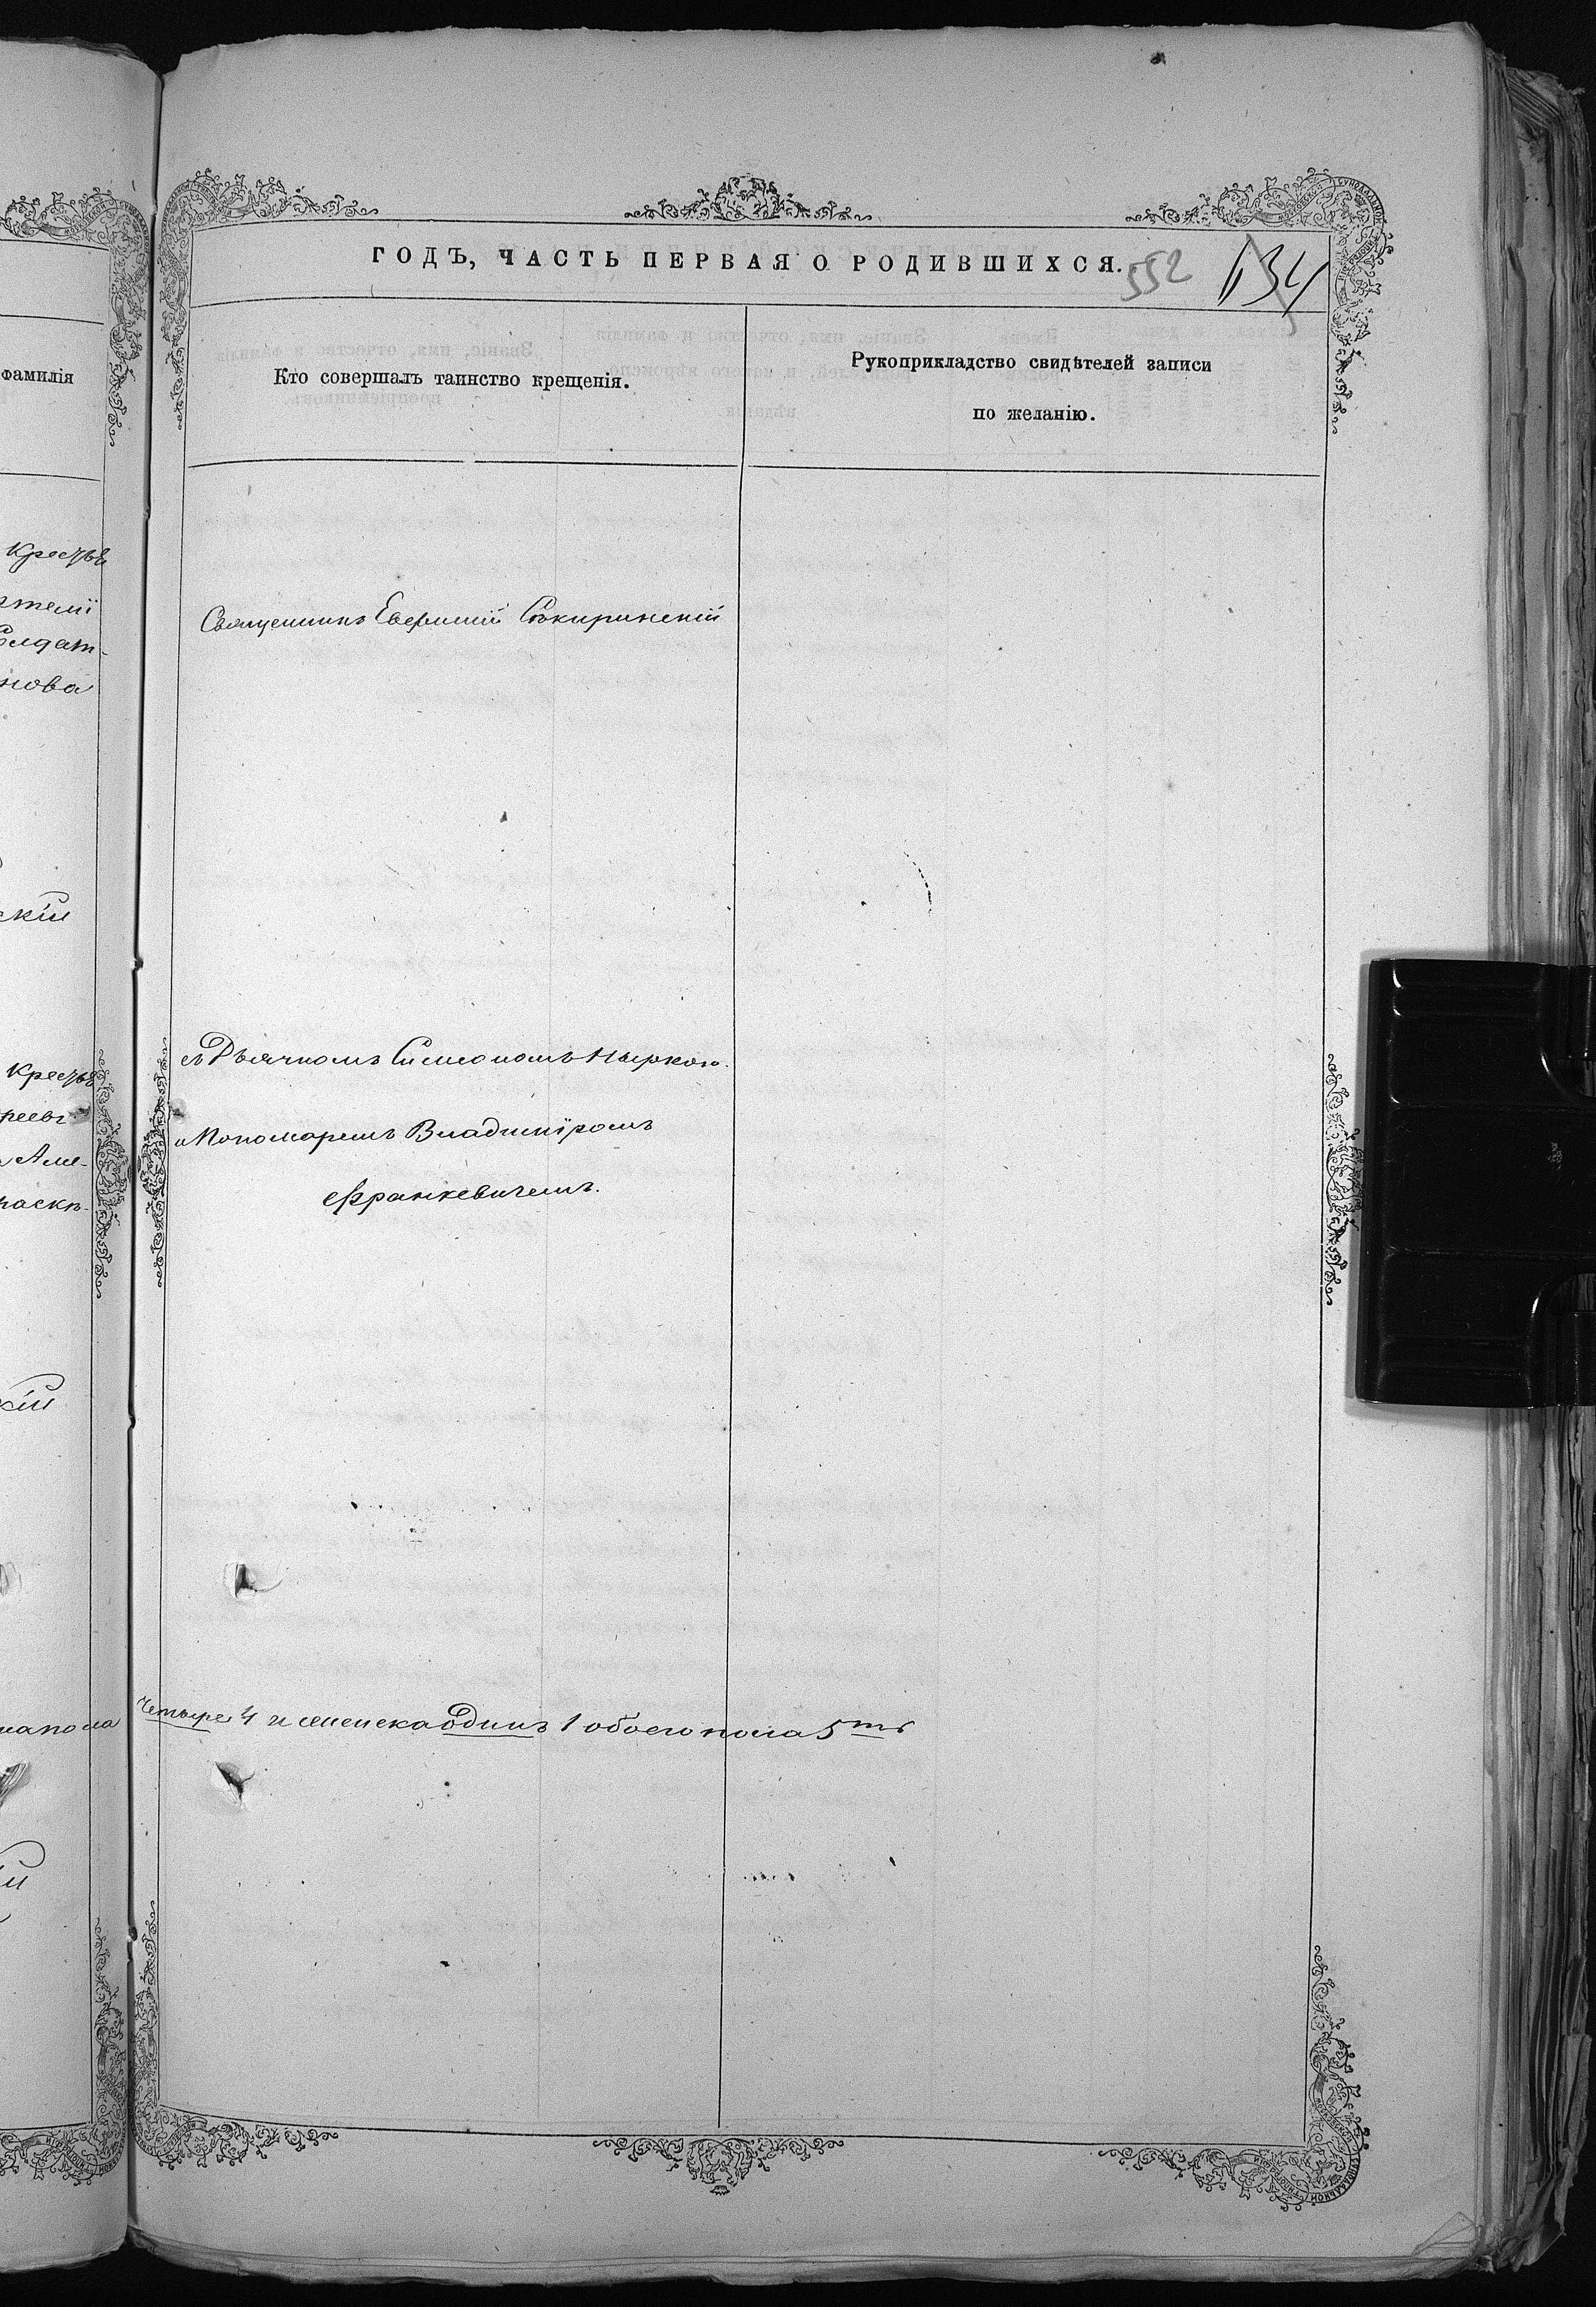 фамилія
Крестья
ртемії
Солдат-
нова
скій
Крестья
реевъ
Аме-
раскъ-
кій
ГОДЪ, ЧАСТЬ ПЕРВАЯ О РОДИВШИХСЯ.
552 134
Кто совершалъ таинство крещенія.
Рукоприкладство свидѣтелей записи
по желанію.
Священникъ Евфимій Сѣкиринскій
съ Дьячкомъ Симеономъ
и Пономаремъ Владиміромъ
Франкевичемъ.
Четыре 4 и женска Одинъ 1 обоего пола 5ть